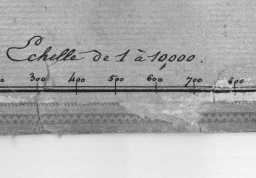 Echelle de 1 à 10,000.
300 400 500 600 700 800